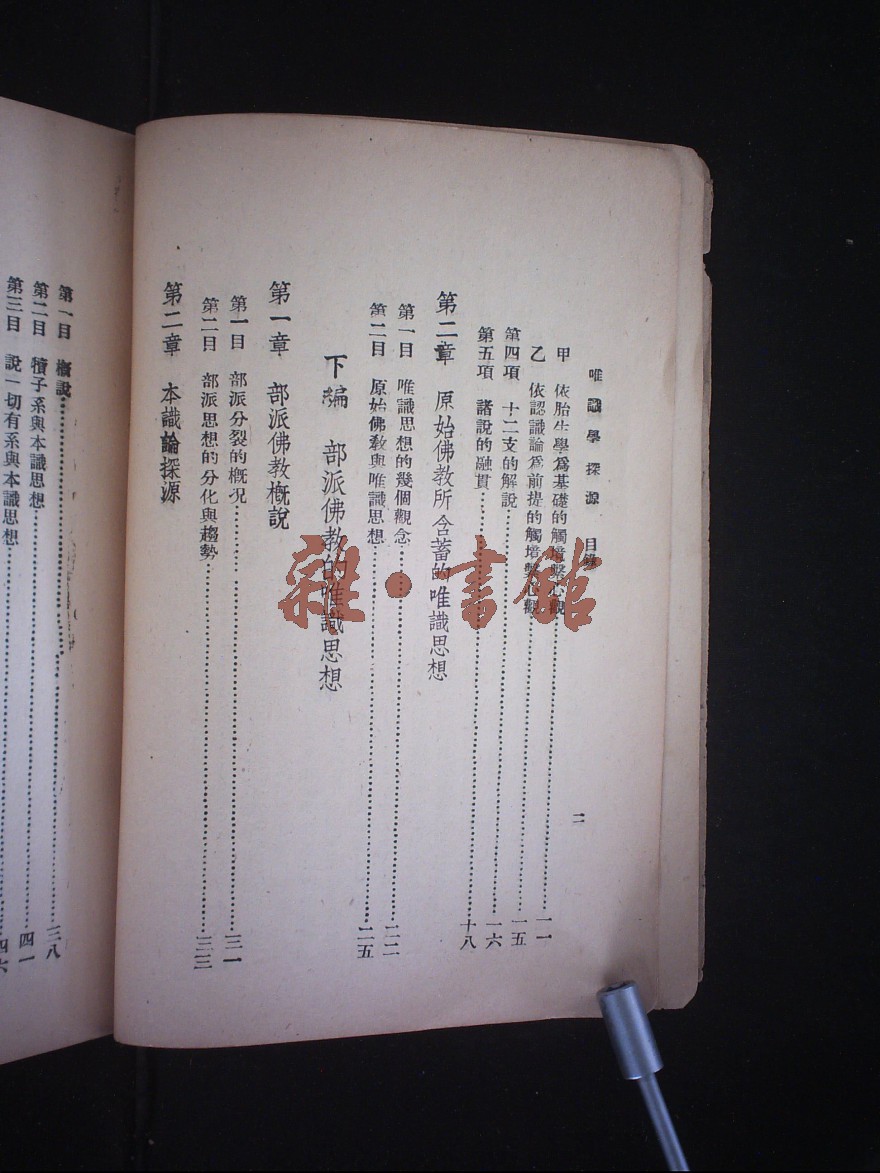 唯識學探源 目錄 二
甲 依胎生學爲基礎的觸境繫心觀 一一
乙 依認識論爲前提的觸境繫心觀 一五
第四項 十二支的解說 一六
第五項 諸說的融貫 十八
第二章 原始佛教所含蓄的唯識思想
第一目 唯識思想的幾個觀念 二二
第二目 原始佛教與唯識思想 二五
下編 部派佛教的唯識思想
第一章 部派佛教概說
第一目 部派分裂的概况 三一
第二目 部派思想的分化與趨勢 三三
第二章 本識論探源
第一目 概說 三八
第二目 犢子系與本識思想 四一
第三目 說一切有系與本識思想 四六
雜·書館